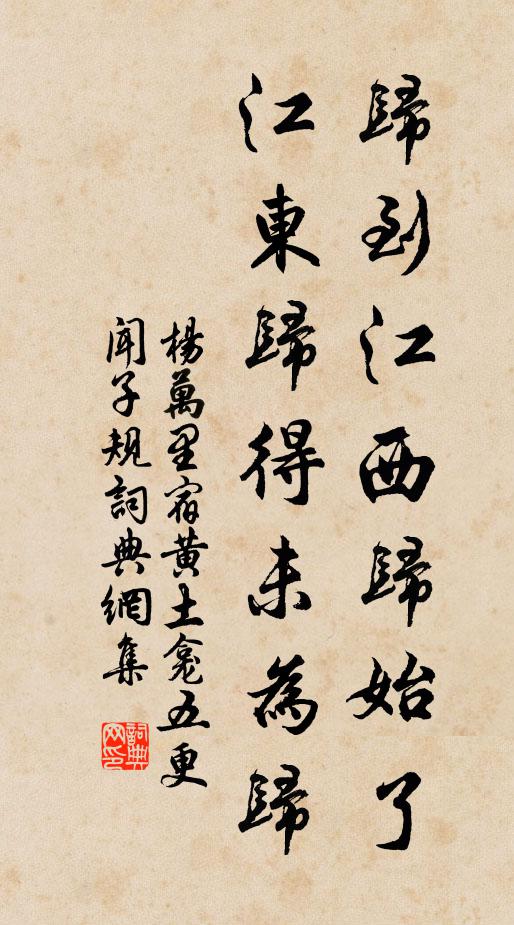 歸到江西歸始了
江東歸得未為歸
楊萬里宿黃土龕五更
聞子規詞典網集
詞典
网印